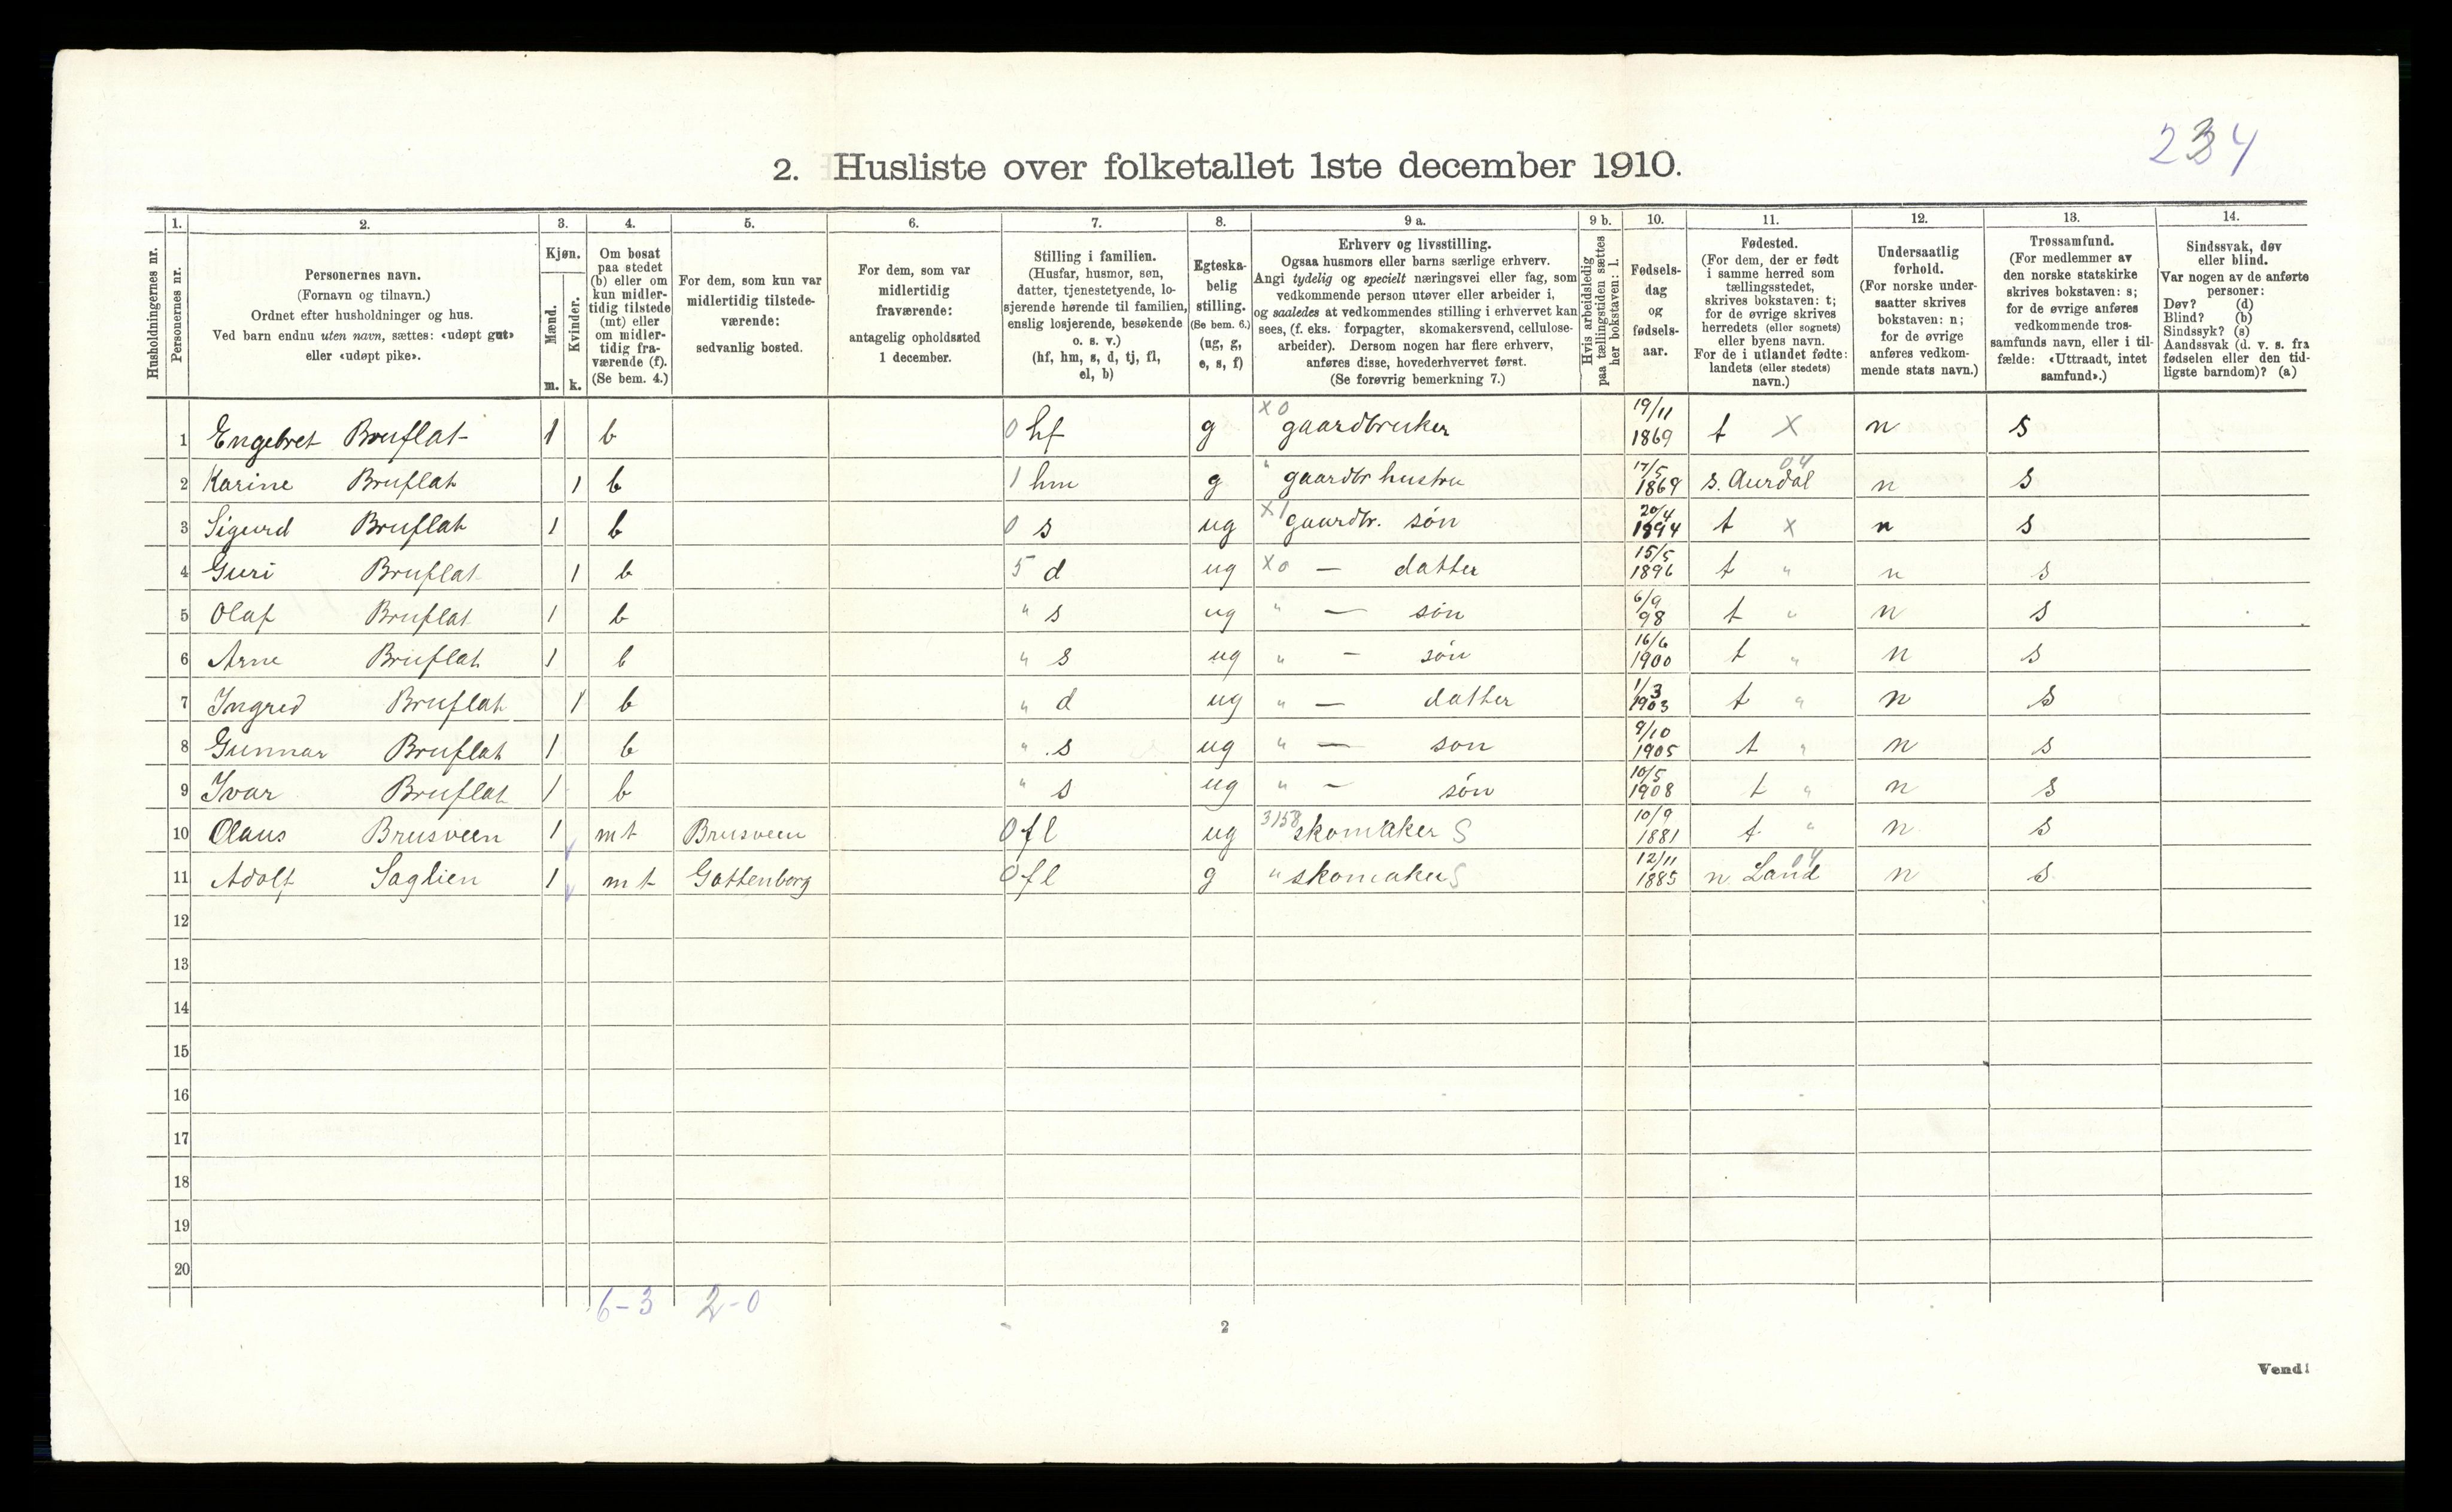 234
2. Husliste over folketallet 1ste december 1910.
Husholdningernes nr.
1. Personernes nr.
2. Personernes navn.
(Fornavn og tilnavn.)
Ordnet efter husholdninger og hus.
Ved barn endnu uten navn, sættes: «udøpt gut»
eller «udøpt pike».
3. Kjøn.
Mænd. m.
Kvinder. k.
4. Om bosat
paa stedet
(b) eller om
kun midler-
tidig tilstede
(mt) eller
om midler-
tidig fra-
værende (f).
(Se bem. 4.)
5. For dem, som kun var
midlertidig tilstede-
værende:
sedvanlig bosted.
6. For dem, som var
midlertidig
fraværende:
antagelig opholdssted
1 december.
7. Stilling i familien.
(Husfar, husmor, søn,
datter, tjenestetyende, lo-
sjerende hørende til familien,
enslig losjerende, besøkende
o. s. v.)
(hf, hm, s, d, tj, fl,
el, b)
8. Egteska-
belig
stilling.
(Se bem. 6.)
(ug, g,
e, s, f)
9 a. Erhverv og livsstilling.
Ogsaa husmors eller barns særlige erhverv.
Angi tydelig og specielt næringsvei eller fag, som
vedkommende person utøver eller arbeider i,
og saaledes at vedkommendes stilling i erhvervet kan
sees, (f. eks. forpagter, skomakersvend, cellulose-
arbeider). Dersom nogen har flere erhverv,
anføres disse, hovederhvervet først.
(Se forøvrig bemerkning 7.)
9 b. Hvis arbeidsledig
paa tællingstiden sættes
her bokstaven: l.
10. Fødsels-
dag
og
fødsels-
aar.
11. Fødested.
(For dem, der er født
i samme herred som
tællingsstedet,
skrives bokstaven: t;
for de øvrige skrives
herredets (eller sognets)
eller byens navn.
For de i utlandet fødte:
landets (eller stedets)
navn.)
12. Undersaatlig
forhold.
(For norske under-
saatter skrives
bokstaven: n;
for de øvrige
anføres vedkom-
mende stats navn.)
13. Trossamfund.
(For medlemmer av
den norske statskirke
skrives bokstaven: s;
for de øvrige anføres
vedkommende tros-
samfunds navn, eller i til-
fælde: «Uttraadt, intet
samfund».)
14. Sindssvak, døv
eller blind.
Var nogen av de anførte
personer:
Døv? (d)
Blind? (b)
Sindssyk? (s)
Aandssvak (d. v. s. fra
fødselen eller den tid-
ligste barndom)? (a)
1 Engebret Bruflat 1 b 0 hf g x0 gaardbruker 19/11 1869 t X n s
2 Karine Bruflat 1 b 1 hm g " gaardbr hustru 17/5 1869 s. Aurdal 04 n s
3 Sigurd Bruflat 1 b 0 s ug x1 gaardbr. søn 20/4 1894 t x n s
4 Guri Bruflat 1 b 5 d ug x0 — datter 15/5 1896 t " n s
5 Olaf Bruflat 1 b " s ug " — søn 6/9 98 t " n s
6 Arne Bruflat 1 b " s ug " — søn 16/6 1900 t " n s
7 Ingred Bruflat 1 b " d ug " — datter 1/3 1903 t " n s
8 Gunnar Bruflat 1 b " s ug " — son 9/10 1905 t " n s
9 Ivar Bruflat 1 b " s ug " — søn 10/5 1908 t " n s
10 Olaus Brusveen 1 mt Brusveen 0 fl ug 3158 skomaker S 10/9 1881 t " n s
11 Adolf Saglien 1 mt Gattenborg 0 fl g " skomaker S 12/11 1885 n. Land 04 n s
12
13
14
15
16
17
18
19
20
6-3 2-0
2
Vend!